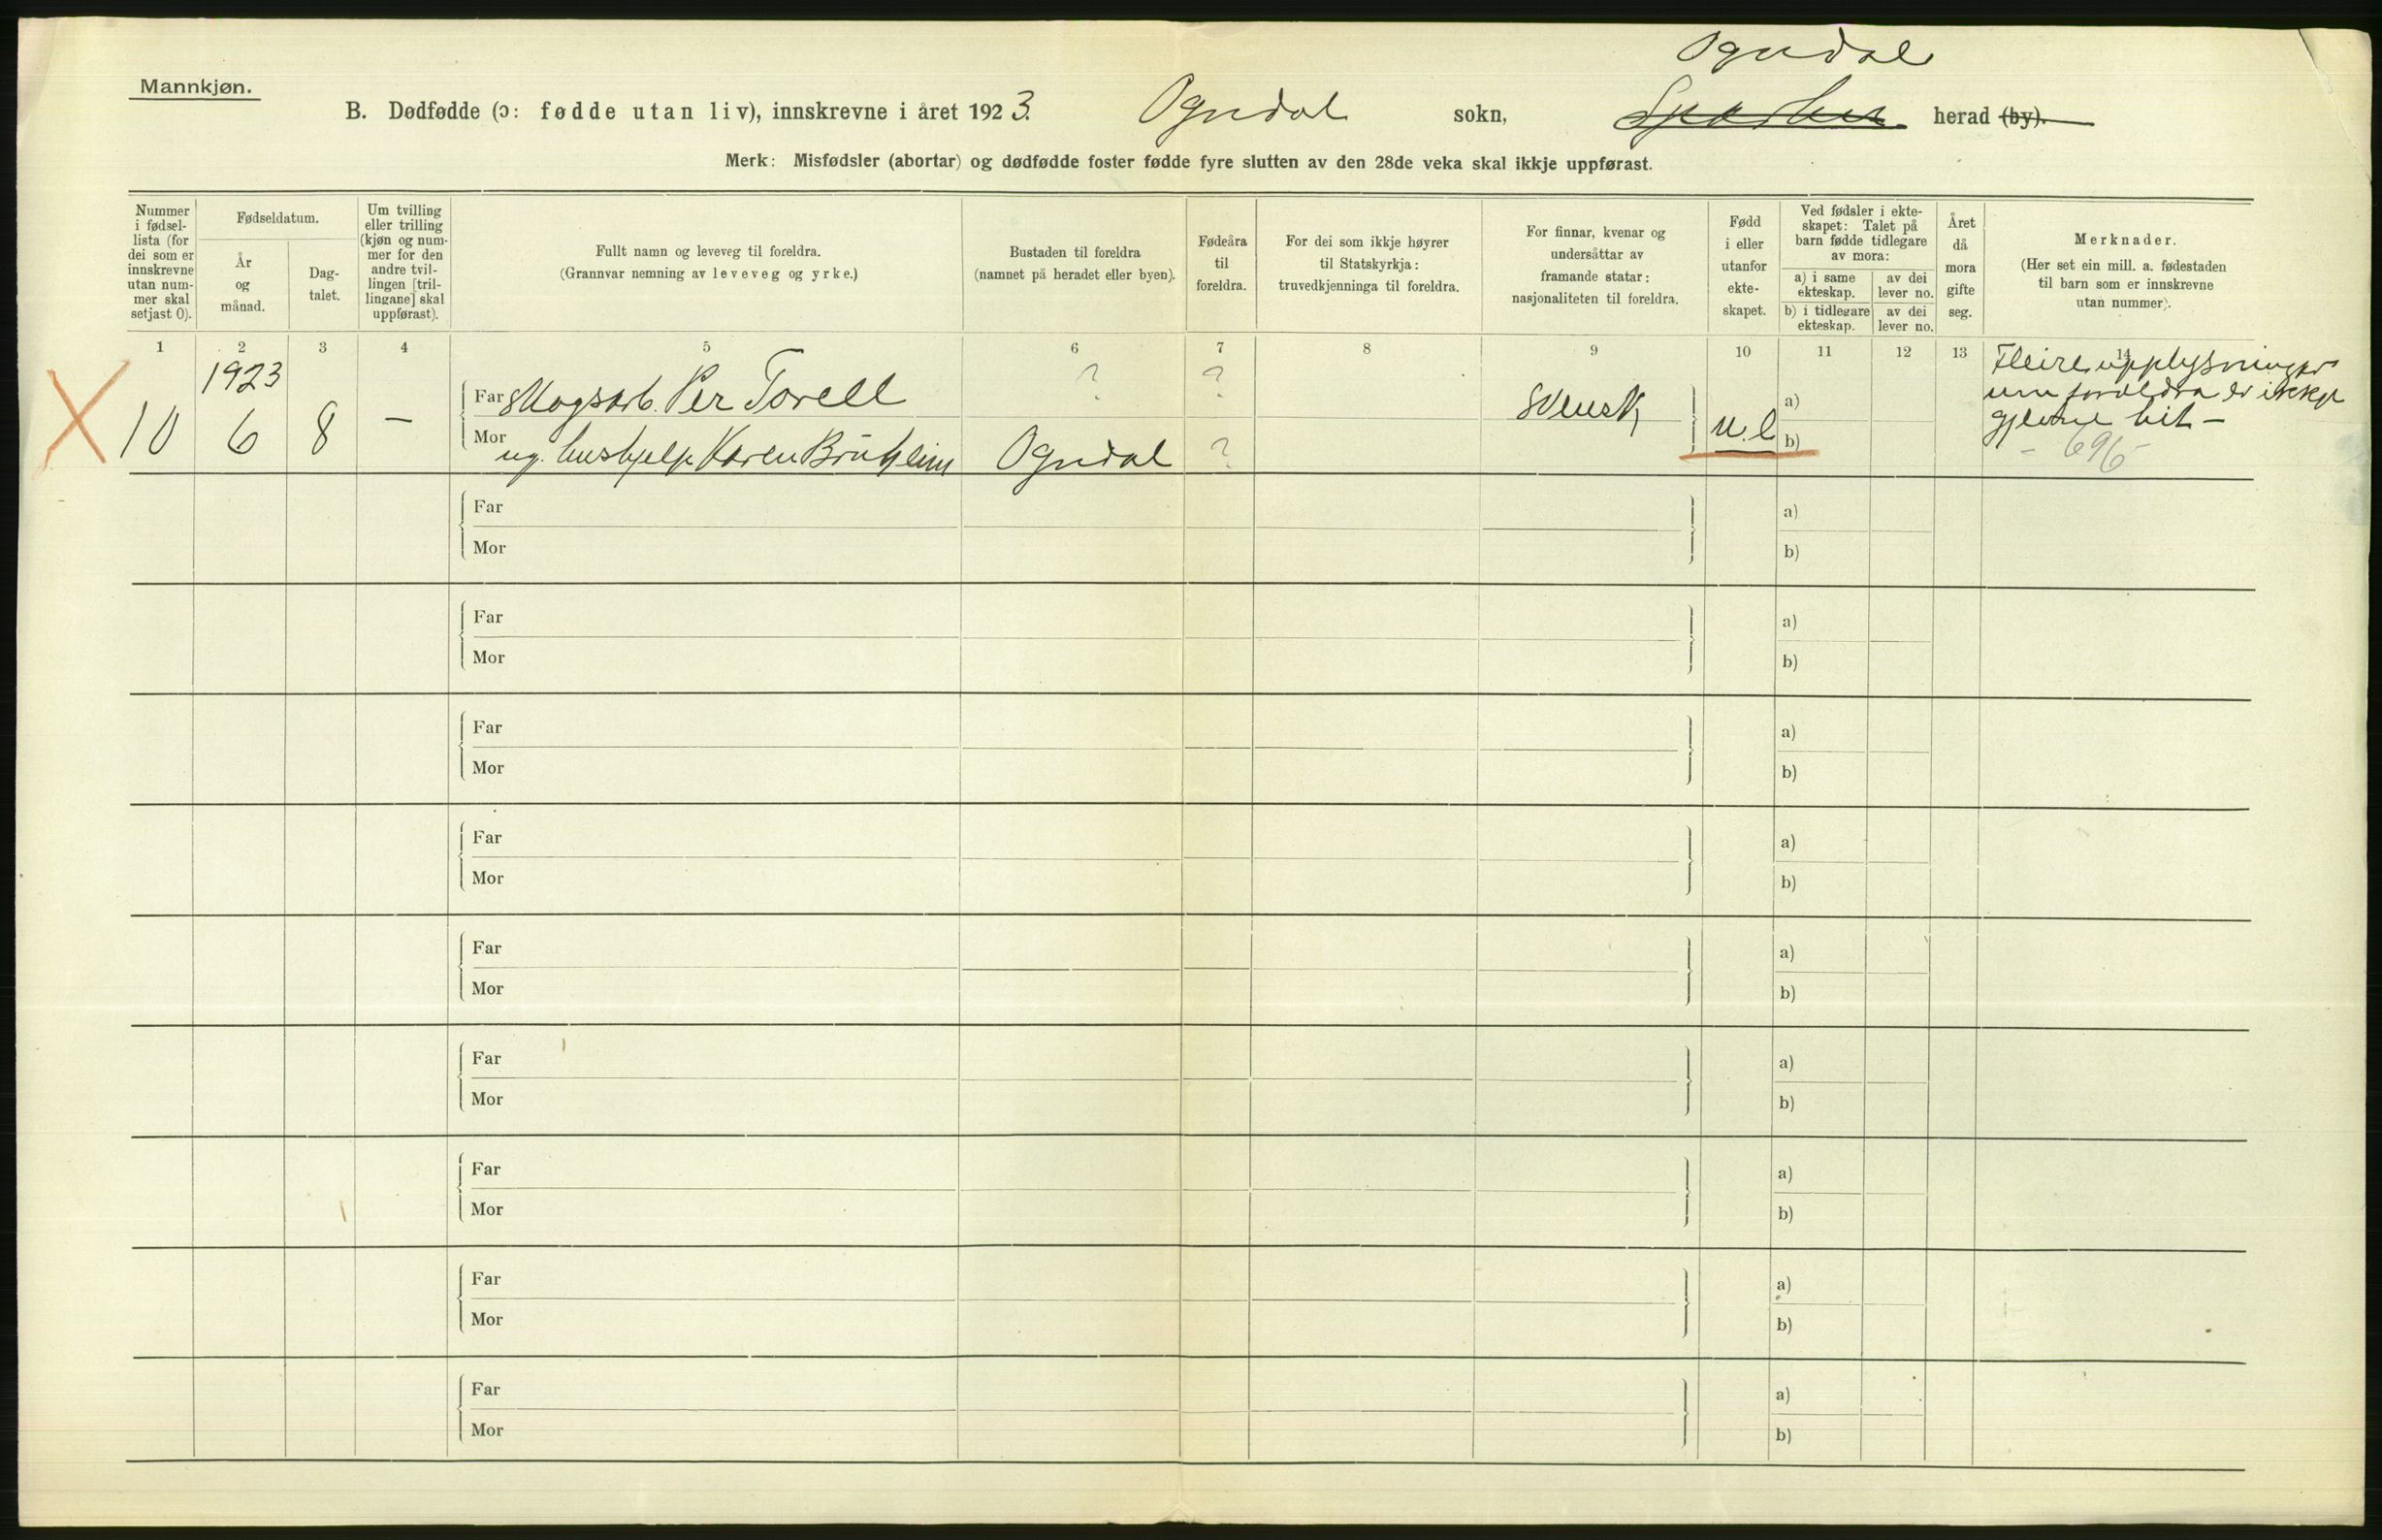 Ogndal
Mannkjøn.
B. Dødfødde (ɔ: fødde utan liv), innskrevne i året 1923. Ogndal sokn, Sparbu herad (by).
Merk: Misfødsler (abortar) og dødfødde foster fødde fyre slutten av den 28de veka skal ikkje uppførast.
Nummer
i fødsel-
lista (for
dei som er
innskrevne
utan num-
mer skal
setjast 0).
Fødseldatum.
År
og
månad.
Dag-
talet.
Um tvilling
eller trilling
(kjøn og num-
mer for den
andre tvil-
lingen [tril-
lingane] skal
uppførast).
Fullt namn og leveveg til foreldra.
(Grannvar nemning av leveveg og yrke.)
Bustaden til foreldra
(namnet på heradet eller byen).
Fødeåra
til
foreldra.
For dei som ikkje høyrer
til Statskyrkja:
truvedkjenninga til foreldra.
For finnar, kvenar og
undersåttar av
framande statar:
nasjonaliteten til foreldra.
Fødd
i eller
utanfor
ekte-
skapet.
Ved fødsler i ekte-
skapet: Talet på
barn fødde tidlegare
av mora:
a) i same
ekteskap.
av dei
lever no.
b) i tidlegare
ekteskap.
av dei
lever no.
Året
då
mora
gifte
seg.
Merknader.
(Her set ein mill. a. fødestaden
til barn som er innskrevne
utan nummer).
1 2 3 4 5 6 7 8 9 10 11 12 13 14
1923
10 6 8 —
Far Skogsarb. Per Torell ? ? Svensk
Mor ug. hushjelp Karen Brúheim Ogndal ? u.e.
a)
b)
Fleire upplysningar
um foreldra er ikkje
gjevne hit —
- 696
Far a)
Mor b)
Far a)
Mor b)
Far a)
Mor b)
Far a)
Mor b)
Far a)
Mor b)
Far a)
Mor b)
Far a)
Mor b)
Far a)
Mor b)
Far a)
Mor b)